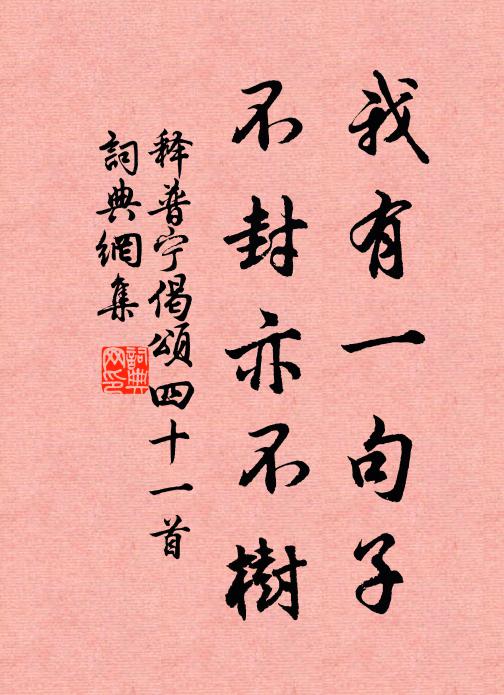 我有一句子
不封亦不樹
释普宁偈頌四十一首
詞典網集
詞典
网印